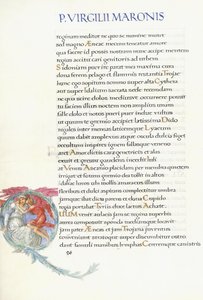 P. VIRGILII MARONIS
reginam meditor ne quo se numine mutet
sed magno Æneae mecum teneatur amore
qua facere id possis nostram nunc accipe mentem
regius accitu cari genitoris ad urbem
Sidoniam puer ire parat mea maxima cura
dona ferens pelago et flammis restantia Trojae:
hunc ego sopitum somno super alta Cythera
aut super Idalium sacrata sede recondam
ne qua scire dolos mediusve occurrere possit
tu faciem illius noctem non amplius unam
falle dolo et notos pueri puer indue vultus
ut cum te gremio accipiet laetissima Dido
regales inter mensas laticemque Lyaeum
cum dabit amplexus atque oscula dulcia figet
occultum inspires ignem fallasque veneno
paret Amor dictis carae genetricis et alas
exuit et gressu gaudens incedit Iuli
at Venus Ascanio placidam per membra quietem
irrigat et fotum gremio dea tollit in altos
Idaliae lucos ubi mollis amaracus illum
floribus et dulci aspirans complectitur umbra
Jamque ibat dicto parens et dona Cupido
regia portabat Tyriis duce laetus Achate
CUM venit aulaeis jam se regina superbis
aurea composuit sponda mediamque locavit
jam pater Æneas et jam Trojana juventus
conveniunt stratoque super discumbitur ostro
dant famuli manibus lymphas Cereremque canistris